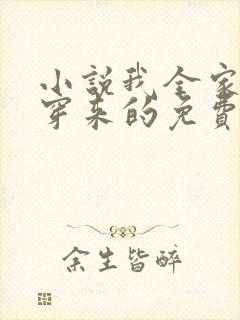 小説我全家
穿来的免費
余生皆醉